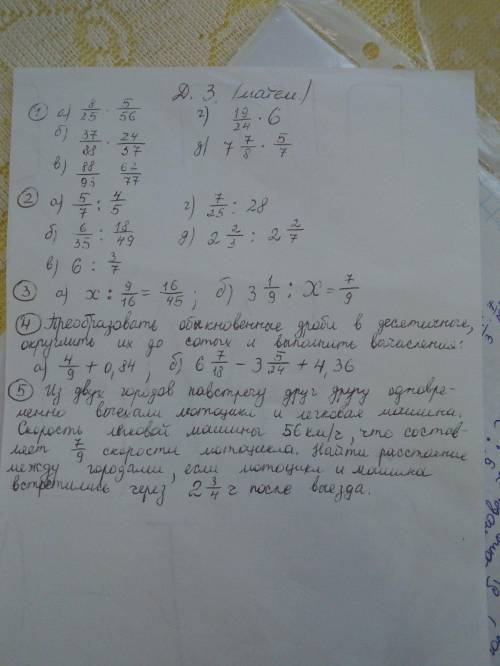 Д. З. (матем)
① а) 8/25 · 5/56 г) 19/24 · 6
б) 37/88 · 24/37 д) 7 7/8 · 5/7
в) 88/93 62/77
② а) 5/7 : 4/5 г) 7/25 : 28
б) 6/35 : 18/49 д) 2 2/3 : 2 2/7
в) 6 : 3/7
③ а) x : 9/16 = 16/45; б) 3 1/9 : x = 7/9
④ Преобразовать обыкновенные дроби в десятичные,
округлить их до сотых и выполнить вычисления:
а) 4/9 + 0,84; б) 6 7/18 − 3 5/24 + 4,36
⑤ Из двух городов навстречу друг другу одновре-
менно выехали мотоцикл и легковая машина.
Скорость легковой машины 56 км/ч, что состав-
ляет 7/9 скорости мотоцикла. Найти расстояние
между городами, если мотоцикл и машина
встретились через 2 3/4 ч после выезда.